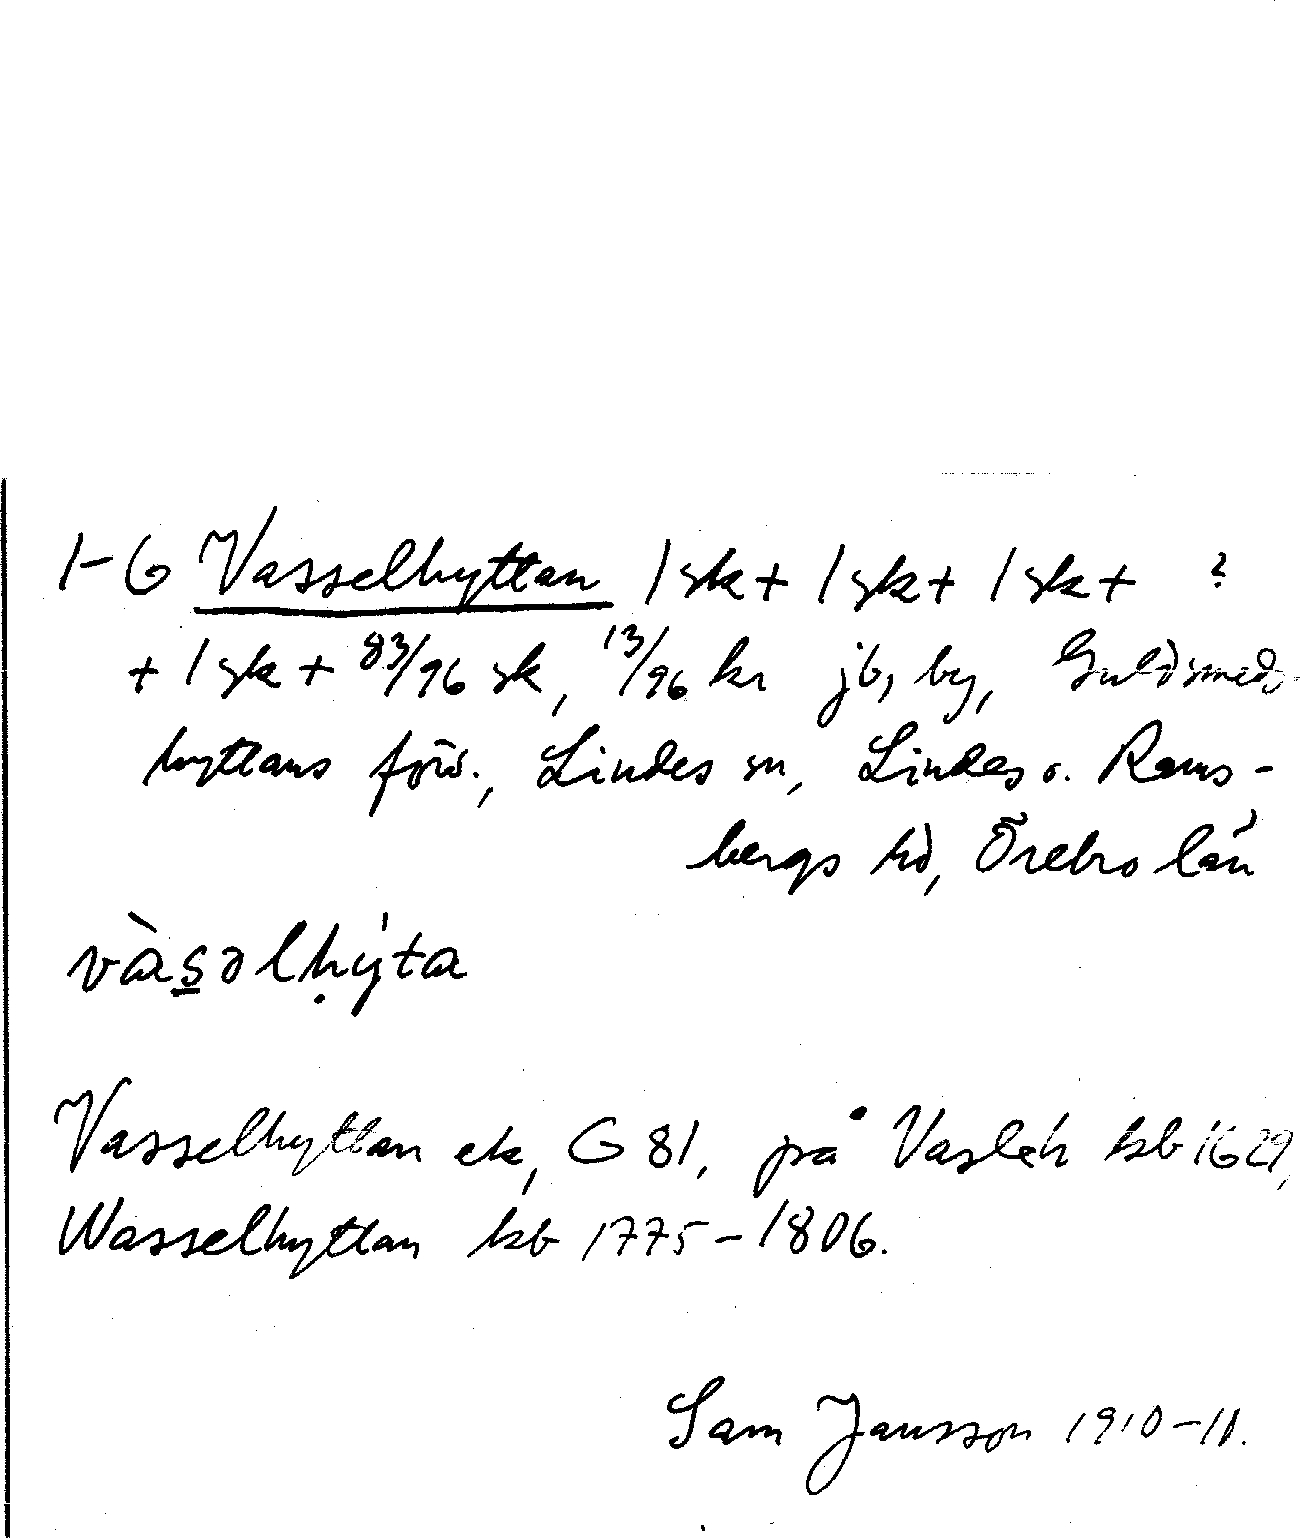 1-6 Vasselhyttan 1 sk + 1 sk + 1 sk + ?
+ 1 sk + 83/96 sk, 13/96 kr jb, by, Guldsmeds-
hyttans förs., Lindes sn, Lindes o. Rams-
bergs hd, Örebro län
vàsəlḥýta
Vasselhyttan ek, G 81, på Vasleh kb 1629,
Wasselhyttan kb 1775-1806.
Sam Jansson 1910-11.